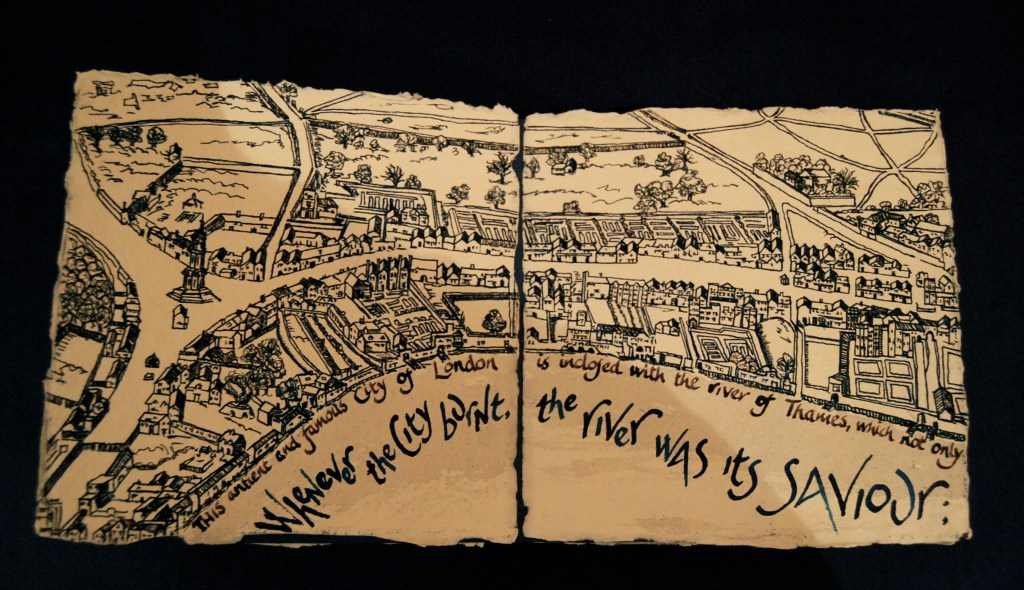 THIS antient and famous City of London is inclosed with the river of Thames, which not only
Whenever the City burnt, the river was its SAViour: